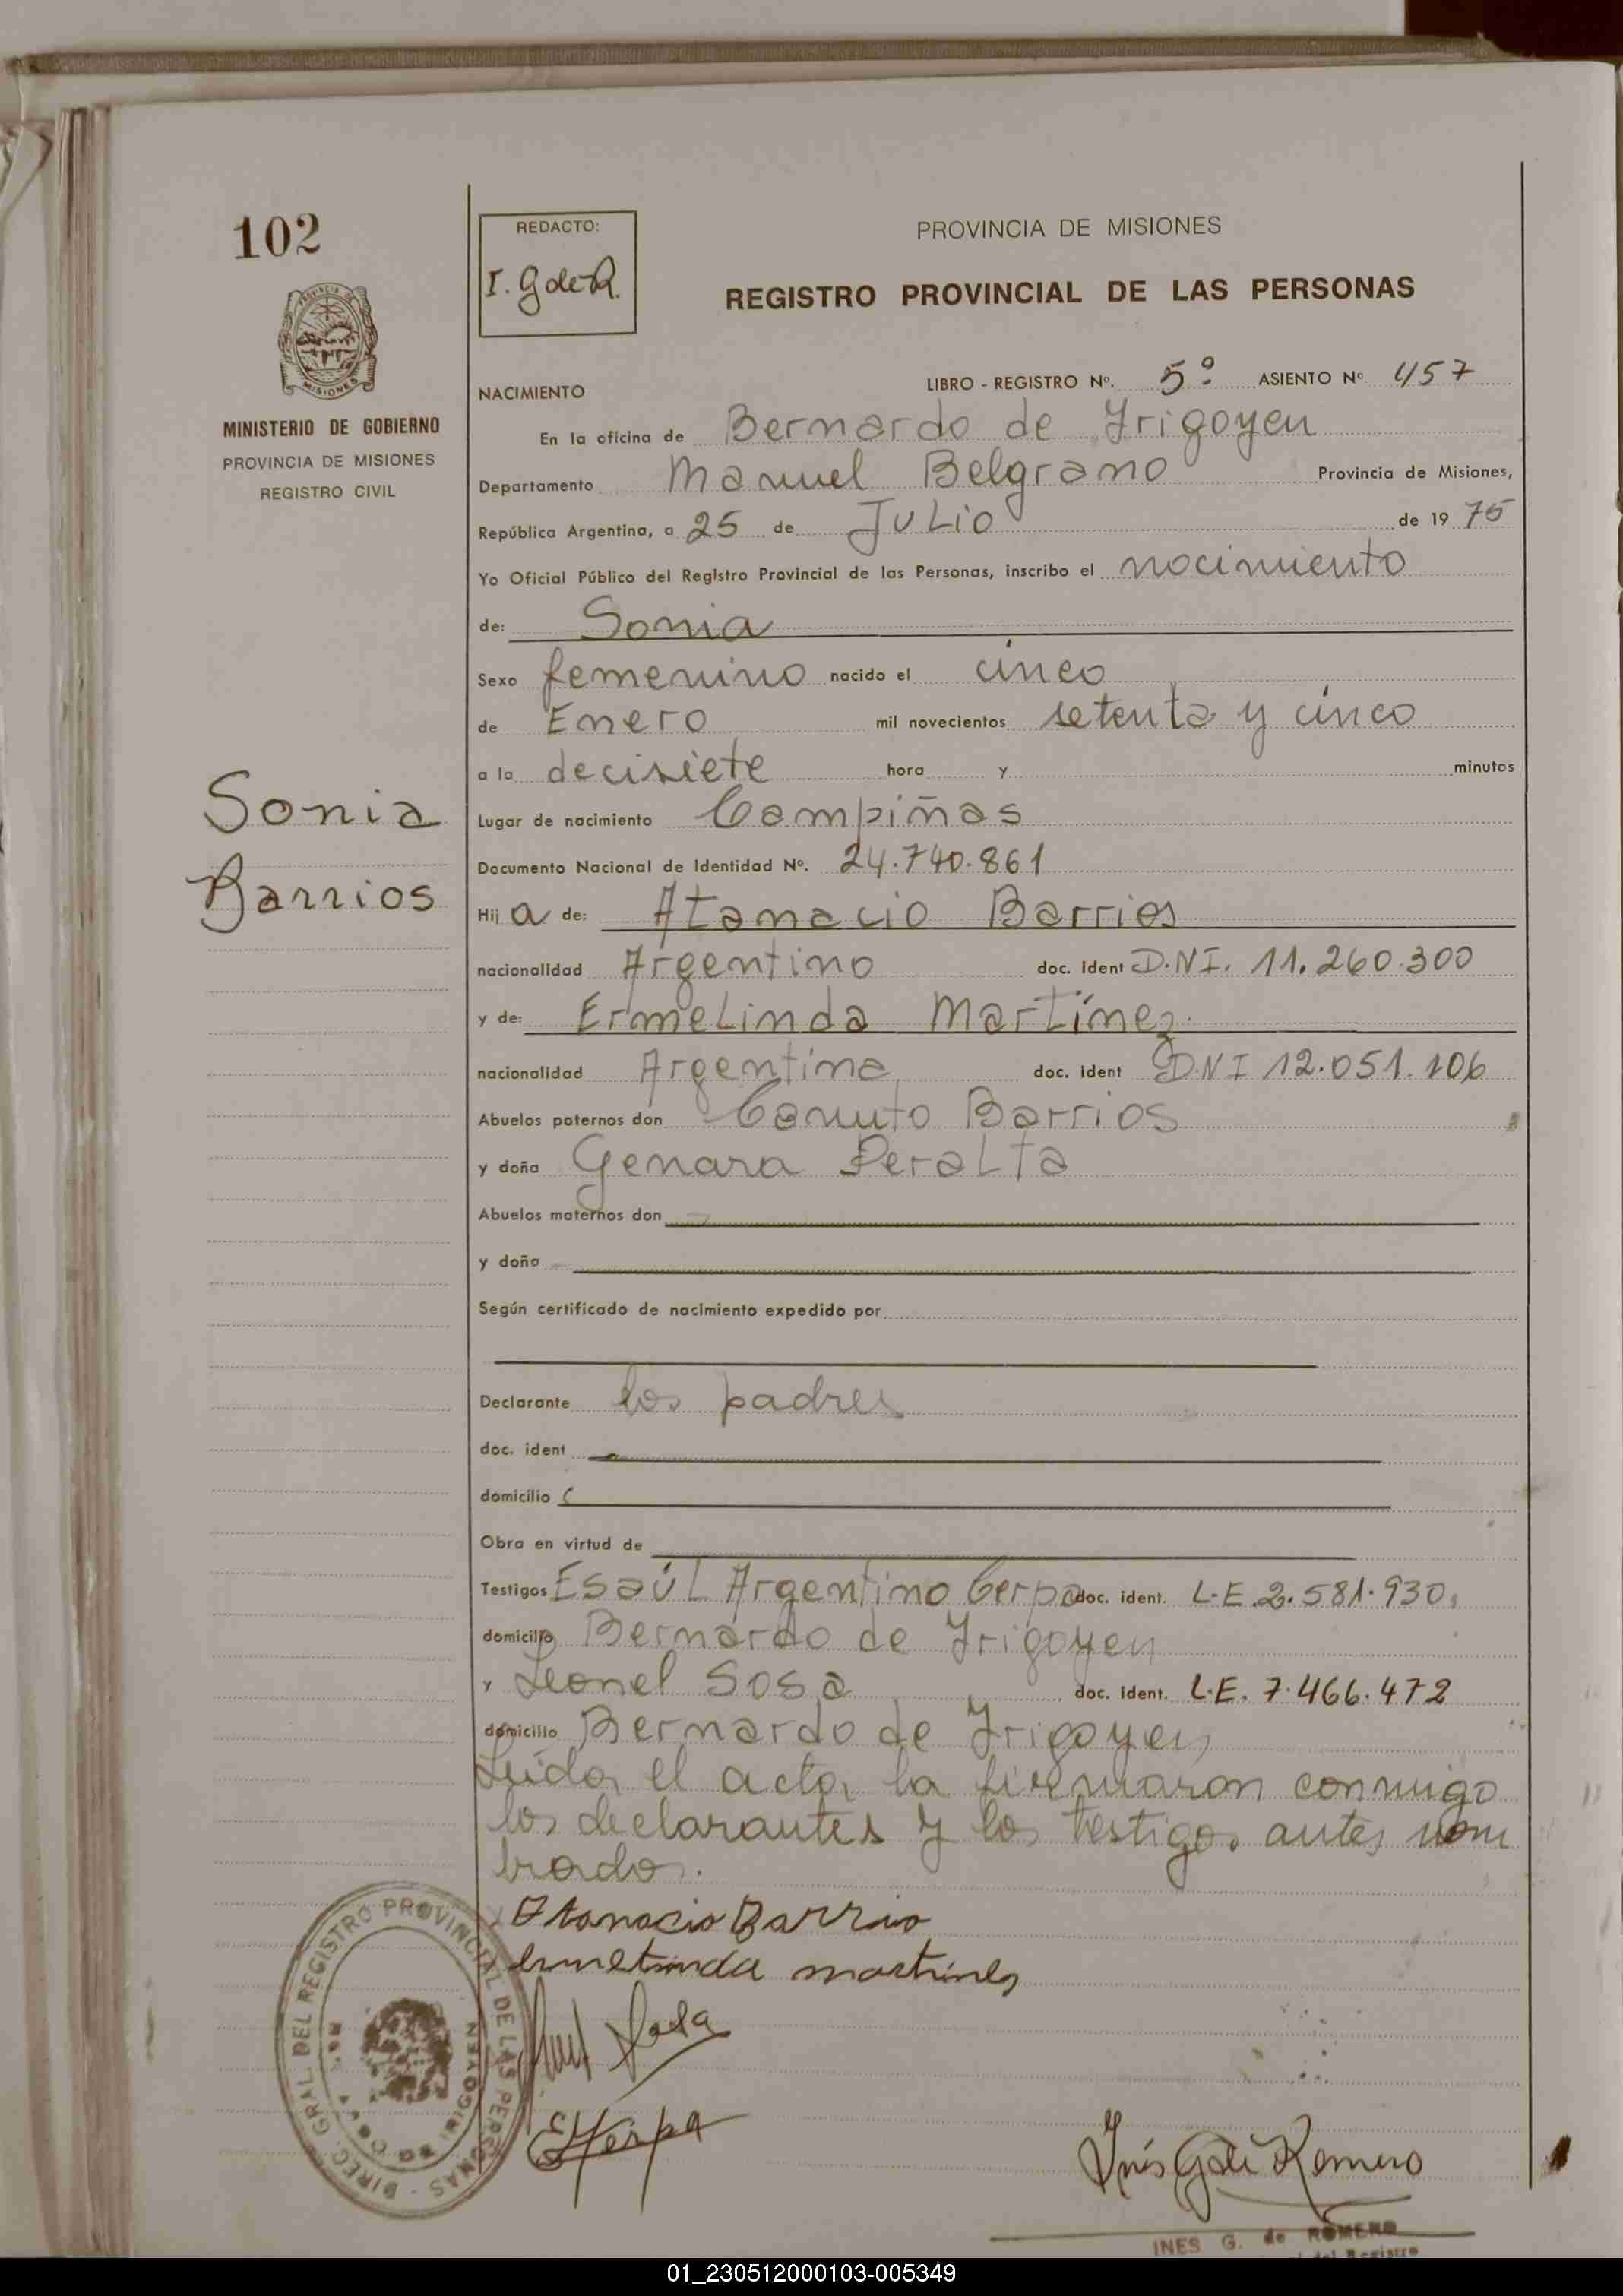 102
REDACTO:
I. G de R.
PROVINCIA DE MISIONES
REGISTRO PROVINCIAL DE LAS PERSONAS
PROVINCIA DE MISIONES
MINISTERIO DE GOBIERNO
PROVINCIA DE MISIONES
REGISTRO CIVIL
NACIMIENTO LIBRO - REGISTRO Nº. 5º ASIENTO Nº 457
En la oficina de Bernardo de Yrigoyen
Departamento Manuel Belgrano Provincia de Misiones,
República Argentina, a 25 de JuLio de 19 75
Yo Oficial Público del Registro Provincial de las Personas, inscribo el nacimiento
de: Sonia
Sexo femenino nacido el cinco
de Enero mil novecientos setenta y cinco
a la decisiete hora y minutos
Sonia
Barrios
Lugar de nacimiento Campiñas
Documento Nacional de Identidad Nº. 24.740.861
Hij a de: Atanacio Barrios
nacionalidad Argentino doc. ident D.N.I. 11.260.300
y de: ErmeLinda Martínez
nacionalidad Argentina doc. ident D.N.I 12.051.106
Abuelos paternos don Canuto Barrios
y doña Genara PeraLta
Abuelos maternos don
y doña
Según certificado de nacimiento expedido por
Declarante los padres
doc. ident
domicilio
Obra en virtud de
Testigos EsaúL Argentino Cerpa doc. ident. L.E. 2.581.930.
domicilio Bernardo de Yrigoyen
y Leonel Sosa doc. ident. L.E. 7.466.472
domicilio Bernardo de Yrigoyen
Leída el acta, la firmaron conmigo
los declarantes y los testigos antes nom
brados.
Atanacio Barrio
ermelinda martines
Sosa
E A Cerpa
Inés G de Romero
DIREC. GRAL. DEL REGISTRO PROVINCIAL DE LAS PERSONAS
INES G. de ROMERO
del Registro
01_230512000103-005349